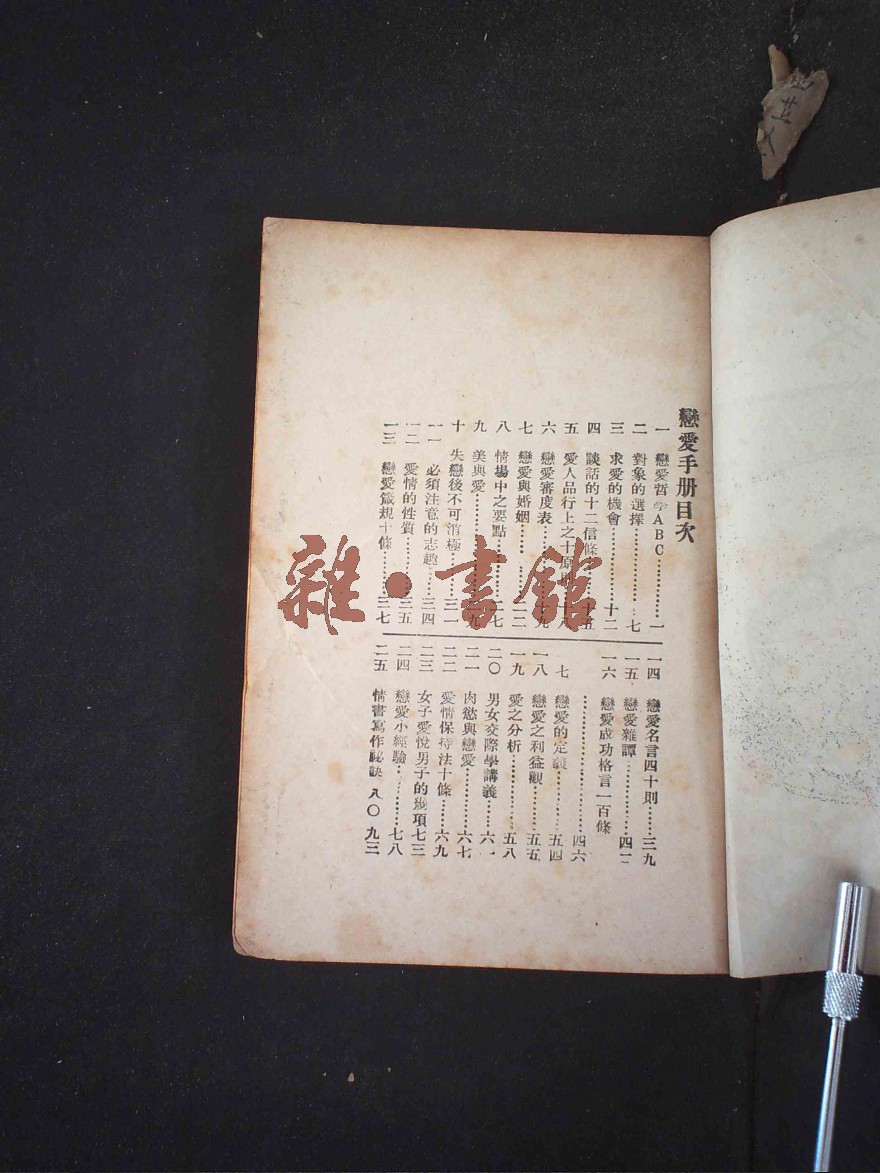 戀愛手册目次
一 戀愛哲学ABC…………一
二 對象的選擇…………七
三 求愛的機會…………十二
四 談話的十二信條
五 愛人品行上之十原則
六 戀愛審度表
七 戀愛與婚姻…………二二
八 情場中之要點
九 美與愛
十 失戀後不可消極…………三一
一一 必須注意的志趣…………三四
一二 愛情的性質…………三五
一三 戀愛箴規十條…………三七
一四 戀愛名言四十則…………三九
一五 戀愛雜譚…………四二
一六 戀愛成功格言一百條
…………四六
七 戀愛的定義…………五四
一八 戀愛之利益觀…………五五
一九 愛之分析…………五八
二〇 男女交際學講義…………六一
二一 肉慾與戀愛…………六七
二二 愛情保持法十條…………六九
二三 女子愛悅男子的幾項七三
二四 戀愛小經驗…………七八
二五 情書寫作祕訣 八〇 九三
雜·書館